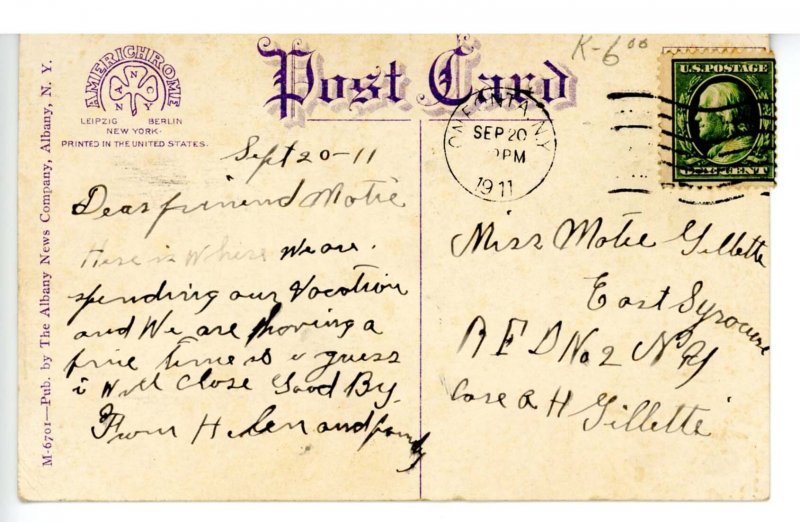 K-6⁰⁰
AMERICHROME
ANNOA
LEIPZIG BERLIN
NEW YORK.
PRINTED IN THE UNITED STATES.
Post Card
ONEONTA, N.Y.
SEP 20
PM
1911
U.S. POSTAGE
ONE CENT
M-6701—Pub. by The Albany News Company, Albany, N. Y.
Sept 20-11
Dear friend Motie
Here is Where We are.
spending our Vocation
and We are hoving a
fine time so guess
i Will Close Good By.
From Helen and family
Miss Motie Gillette
East Syrocuse
RFD No 2 NY
Care A H Gillette